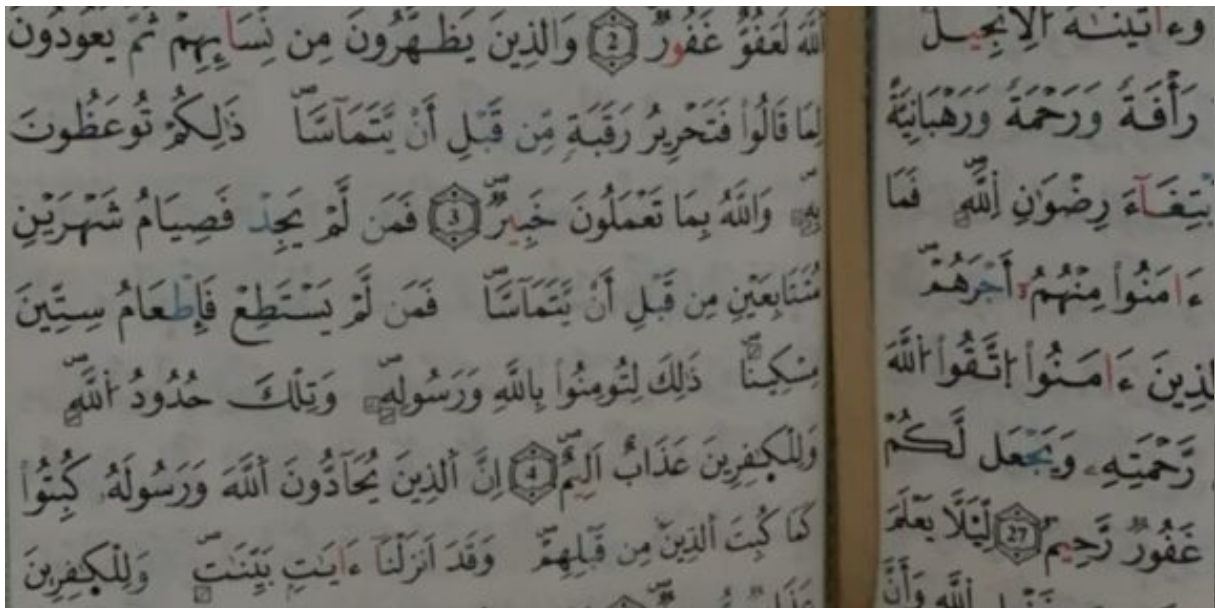 وَءَاتَيْنَٰهُ الِانجِيلَ
رَأْفَةً وَرَحْمَةً وَرَهْبَانِيَّةً
ابْتِغَآءَ رِضْوَٰنِ اِللَّهِ فَمَا
ءَامَنُواْ مِنْهُمُۥ أَجْرَهُمْ
الذِينَ ءَامَنُواْ اُتَّقُواْ اُللَّهَ
رَّحْمَتِهِۦ وَيَجْعَل لَّكُمْ
غَفُورٌ رَّحِيمٌ 27 لِّيَلَّا يَعْلَمَ
اللَّهِ وَأَنَّ
اَللَّهَ لَعَفُوٌّ غَفُورٌ 2 وَالذِينَ يَظَّهَّرُونَ مِن نِّسَآئِهِمْ ثُمَّ يَعُودُونَ
لِمَا قَالُواْ فَتَحْرِيرُ رَقَبَةٍ مِّن قَبْلِ أَنْ يَّتَمَآسَّا ذَٰلِكُمْ تُوعَظُونَ
بِهِ وَاللَّهُ بِمَا تَعْمَلُونَ خَبِيرٌ 3 فَمَن لَّمْ يَجِدْ فَصِيَامُ شَهْرَيْنِ
مُتَتَابِعَيْنِ مِن قَبْلِ أَنْ يَّتَمَآسَّا فَمَن لَّمْ يَسْتَطِعْ فَإِطْعَامُ سِتِّينَ
مِسْكِيناً ذَٰلِكَ لِتُومِنُواْ بِاللَّهِ وَرَسُولِهِ وَتِلْكَ حُدُودُ اُللَّهِ
وَلِلْكٰفِرِينَ عَذَابٌ اَلِيمٌ 4 اِنَّ اَلذِينَ يُحَآدُّونَ اَللَّهَ وَرَسُولَهُۥ كُبِتُواْ
كَمَا كُبِتَ اَلذِينَ مِن قَبْلِهِمْ وَقَدَ اَنزَلْنَآ ءَايَٰتٍ بَيِّنَٰتٍ وَلِلْكٰفِرِينَ